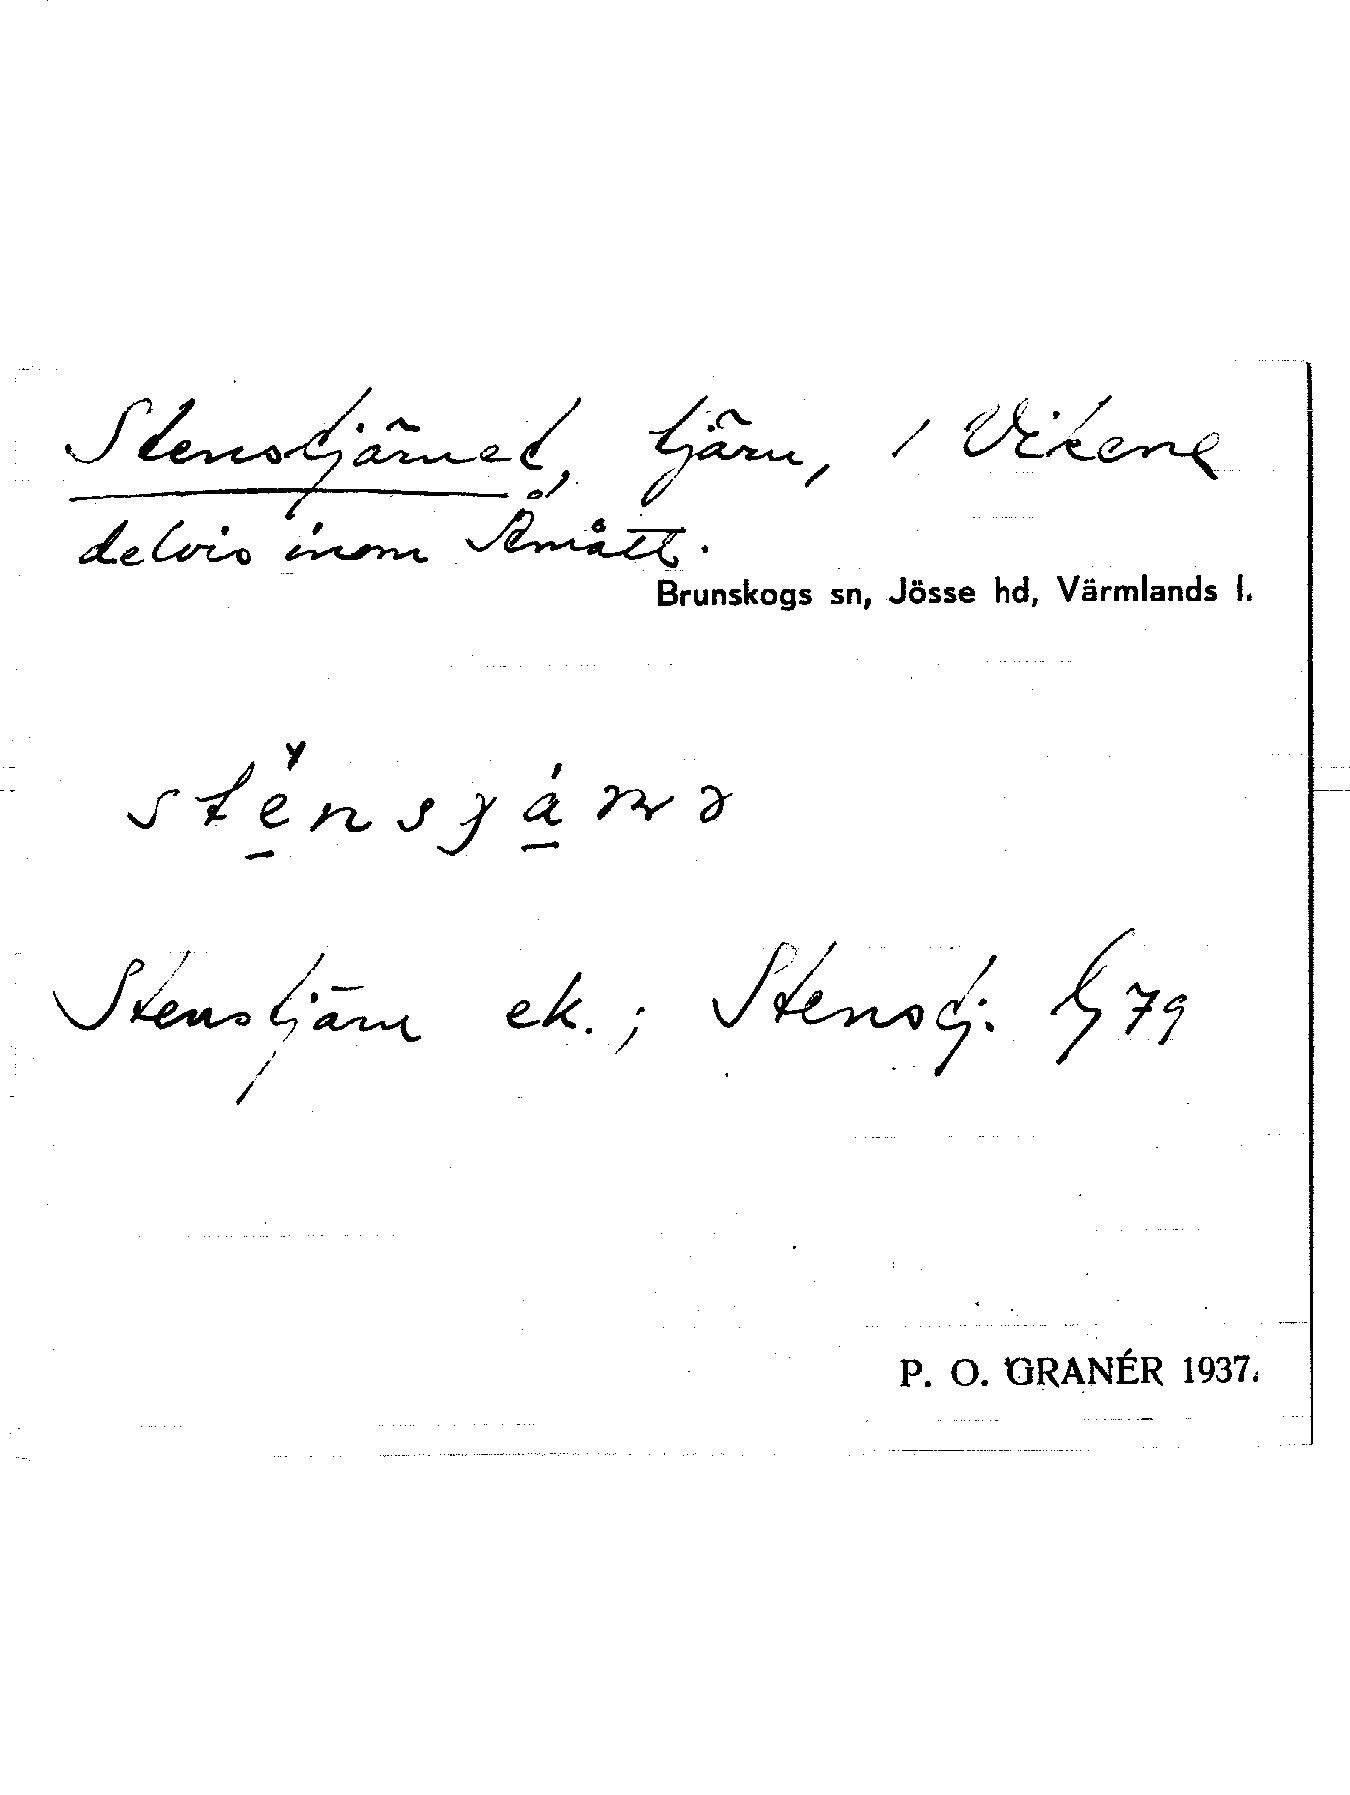 Stenstjärnet, tjärn, / Vikene
delvis inom Åmått.
Brunskogs sn, Jösse hd, Värmlands l.
Stenstjärn ek.; Stenstj. 79
P. O. GRANÉR 1937.